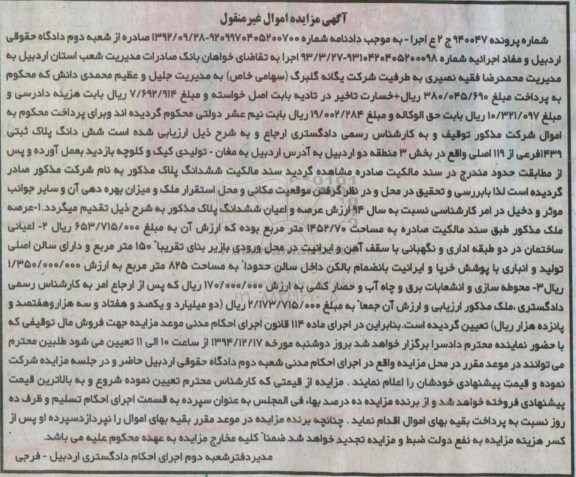 آگهی مزایده اموال غیرمنقول
شماره پرونده ۹۴۰۰۴۷ ج ۲ ع اجرا - به موجب دادنامه شماره ۹۲۰۹۹۷۰۴۰۵۲۰۰۷۰۰-۱۳۹۲/۰۹/۲۸ صادره از شعبه دوم دادگاه حقوقی
اردبیل و مفاد اجرائیه شماره ۹۳۱۰۴۲۰۴۰۵۲۰۰۰۹۸-۹۳/۳/۲۷ اجرا به تقاضای خواهان بانک صادرات مدیریت شعب استان اردبیل به
مدیریت محمدرضا فقیه نصیری به طرفیت شرکت یگانه گلبرگ (سهامی خاص) به مدیریت جلیل و عظیم محمدی دانش که محکوم
به پرداخت مبلغ ۳۸۰/۰۴۵/۶۹۰ ریال+خسارت تاخیر در تادیه بابت اصل خواسته و مبلغ ۷/۶۹۲/۹۱۴ ریال بابت هزینه دادرسی و
مبلغ ۱۰/۳۲۱/۰۹۷ ریال بابت حق الوکاله و مبلغ ۱۹/۰۰۲/۲۸۴ ریال بابت نیم عشر دولتی محکوم گردیده اند وبرای پرداخت محکوم به
اموال شرکت مذکور توقیف و به کارشناس رسمی دادگستری ارجاع و به شرح ذیل ارزیابی شده است شش دانگ پلاک ثبتی
۱۴۳۹فرعی از ۱۱۹ اصلی واقع در بخش ۳ منطقه دو اردبیل به آدرس اردبیل به مغان - تولیدی کیک و کلوچه بازدید بعمل آورده و پس
از مطابقت حدود مندرج در سند مالکیت صادره مشاهده گردید سند مالکیت ششدانگ پلاک مذکور به نام شرکت مذکور صادر
گردیده است لذا بابررسی و تحقیق در محل و در نظر گرفتن موقعیت مکانی و محل استقرار ملک و میزان بهره دهی آن و سایر جوانب
موثر و دخیل در امر کارشناسی نسبت به سال ۹۴ ارزش عرصه و اعیان ششدانگ پلاک مذکور به شرح ذیل تقدیم میگردد. ۱-عرصه
ملک مذکور طبق سند مالکیت صادره به مساحت ۱۴۵۲/۷۰ متر مربع بوده که ارزش آن به مبلغ ۶۵۳/۷۱۵/۰۰۰ ریال ۲- اعیانی
ساختمان در دو طبقه اداری و نگهبانی با سقف آهن و ایرانیت در محل ورودی بازیر بنای تقریبا" ۱۵۰ متر مربع و دارای سالن اصلی
تولید و انباری با پوشش خرپا و ایرانیت بانضمام بالکن داخل سالن حدودا" به مساحت ۸۲۵ متر مربع به ارزش ۱/۳۵۰/۰۰۰/۰۰۰
ریال۳- محوطه سازی و انشعابات برق و چاه آب و حصار کشی به ارزش ۱۷۰/۰۰۰/۰۰۰ ریال که پس از ارجاع امر به کارشناس رسمی
دادگستری ،ملک مذکور ارزیابی و ارزش آن جمعا" به مبلغ ۲/۱۷۳/۷۱۵/۰۰۰ ریال (دو میلیارد و یکصد و هفتاد و سه هزاروهفتصد و
پانزده هزار ریال) تعیین گردیده است.بنابراین در اجرای ماده ۱۱۴ قانون اجرای احکام مدنی موعد مزایده جهت فروش مال توقیفی که
با حضور نماینده محترم دادسرا برگزار خواهد شد بروز دوشنبه مورخه ۱۳۹۴/۱۲/۱۷ از ساعت ۱۰ الی ۱۱ تعیین می شود طلبین محترم
می توانند در موعد مقرر در محل مزایده واقع در اجرای احکام مدنی شعبه دوم دادگاه حقوقی اردبیل حاضر و در جلسه مزایده شرکت
نموده و قیمت پیشنهادی خودشان را اعلام نمایند . مزایده از قیمتی که کارشناس محترم تعیین نموده شروع و به بالاترین قیمت
پیشنهادی فروخته خواهد شد و از برنده مزایده ده درصد بها، فی المجلس به عنوان سپرده به قسمت اجرای احکام تسلیم و ظرف ده
روز نسبت به پرداخت بقیه بهای اموال اقدام نماید . چنانچه برنده مزایده در موعد مقرر بقیه بهای اموال را نپردازدسپرده او پس از
کسر هزینه مزایده به نفع دولت ضبط و مزایده تجدید خواهد شد ضمنا" کلیه مخارج مزایده به عهده محکوم علیه می باشد.
مدیردفترشعبه دوم اجرای احکام دادگستری اردبیل - فرجی